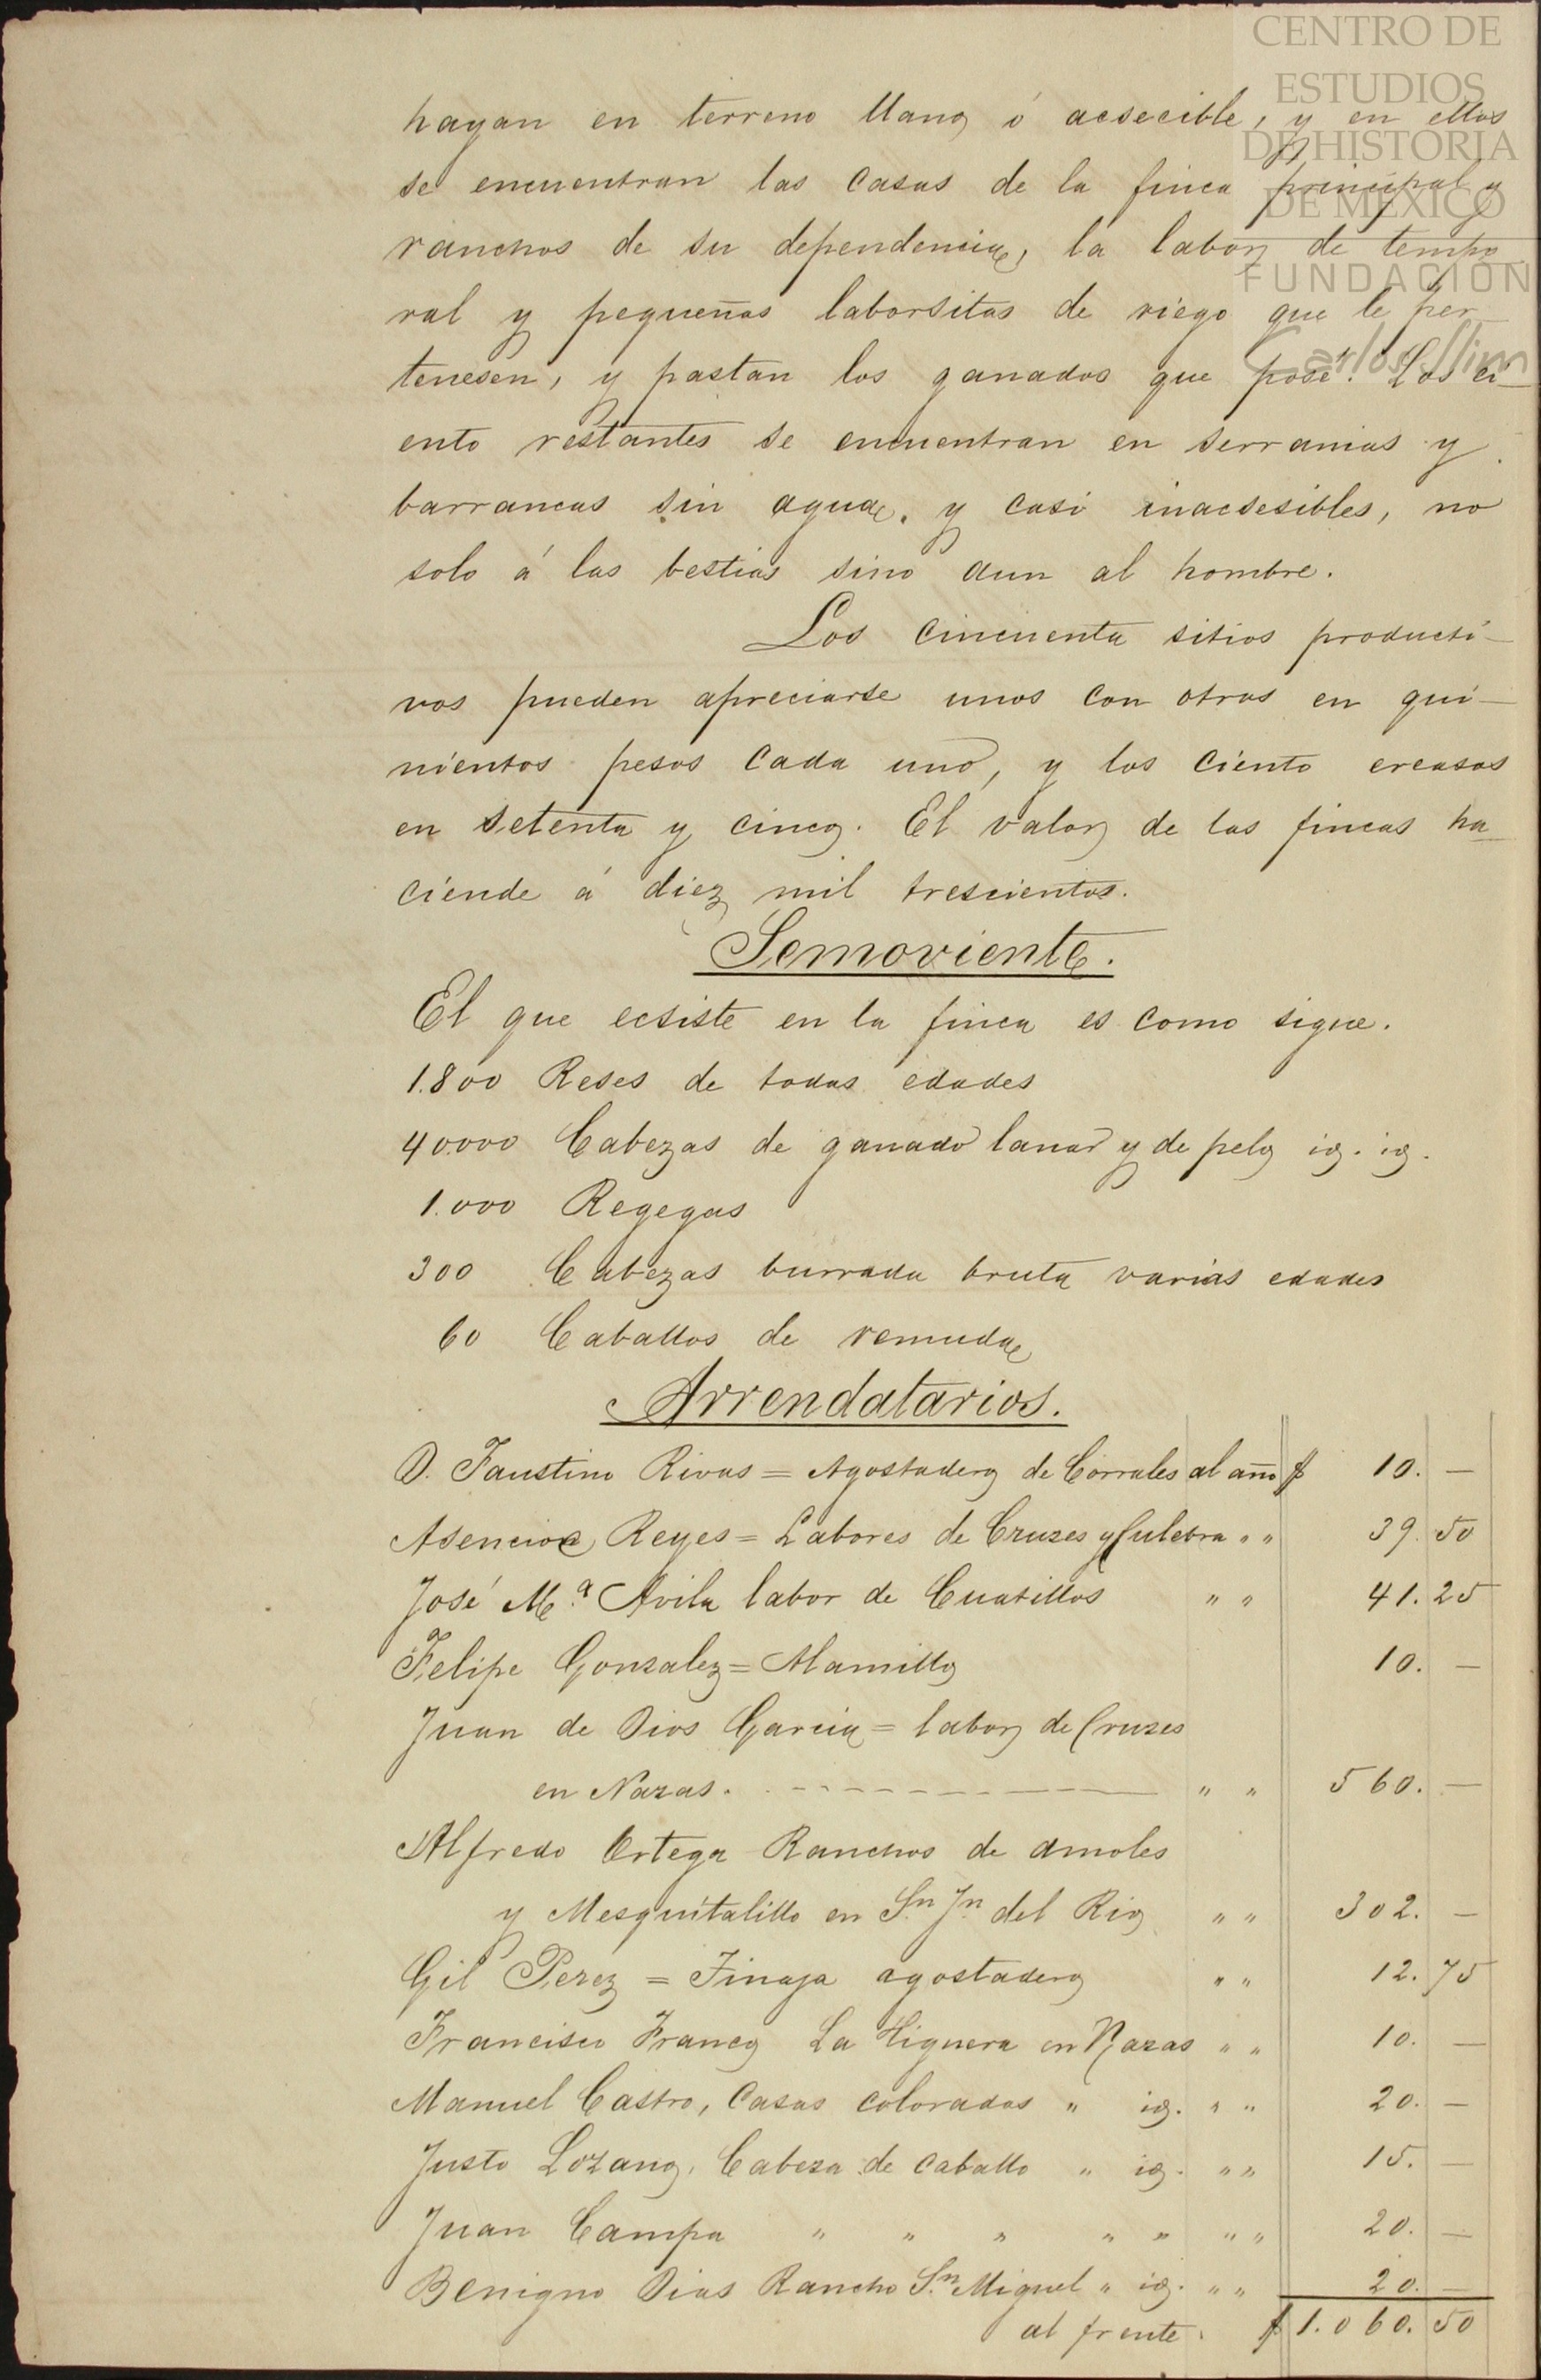 CENTRO DE
ESTUDIOS
DE HISTORIA
DE MÉXICO
FUNDACIÓN
Carlos Slim
hayan en terreno llano ó acsecible, y en ellos
se encuentran las casas de la finca principal y
ranchos de su dependencia, la labor de tempo
ral y pequeñas laborsitas de riego que le per
tenesen, y pastan los ganados que posé. Los ci-
ento restantes se encuentran en serranias y
barrancas sin agua, y casi inacsesibles, no
solo á las bestias sino aun al hombre.
Los cincuenta sitios producti-
vos pueden apreciarse unos con otros en qui-
nientos pesos cada uno, y los ciento ereasos
en setenta y cinco. El valor de las fincas ha
ciende á diez mil trescientos.
Semoviente.
El que ecsiste en la finca es como sigue.
1.800 Reses de todas edades
40.000 Cabezas de ganado lanar y de pelo id. id.
1.000 Regegas
300 Cabezas burrada bruta varias edades
60 Caballos de remuda
Arrendatarios.
D. Faustino Rivas = Agostadero de Corrales al año $ 10. —
Asencion Reyes = Labores de Cruses y Culebra " " 39. 50
José Ma. Avila labor de Cuatillos " " 41. 25
Felipe Gonzalez = Alamillo 10. —
Juan de Dios Garcia = labor de Cruses
en Nazas. - - - - - - " " 560. —
Alfredo Ortega Ranchos de amoles
y Mesquitalillo en Sn. Jn. del Rio " " 302. —
Gil Perez = Tinaja agostadero " " 12. 75
Francisco Franco La Higuera en Nazas " " 10. —
Manuel Castro, Casas coloradas " id. " " 20. —
Justo Lozano, Cabeza de caballo " id. " " 15. —
Juan Campa " " " " " " " 20. —
Benigno Dias Rancho Sn. Miguel " id. " " 20. —
al frente. $ 1.060. 50